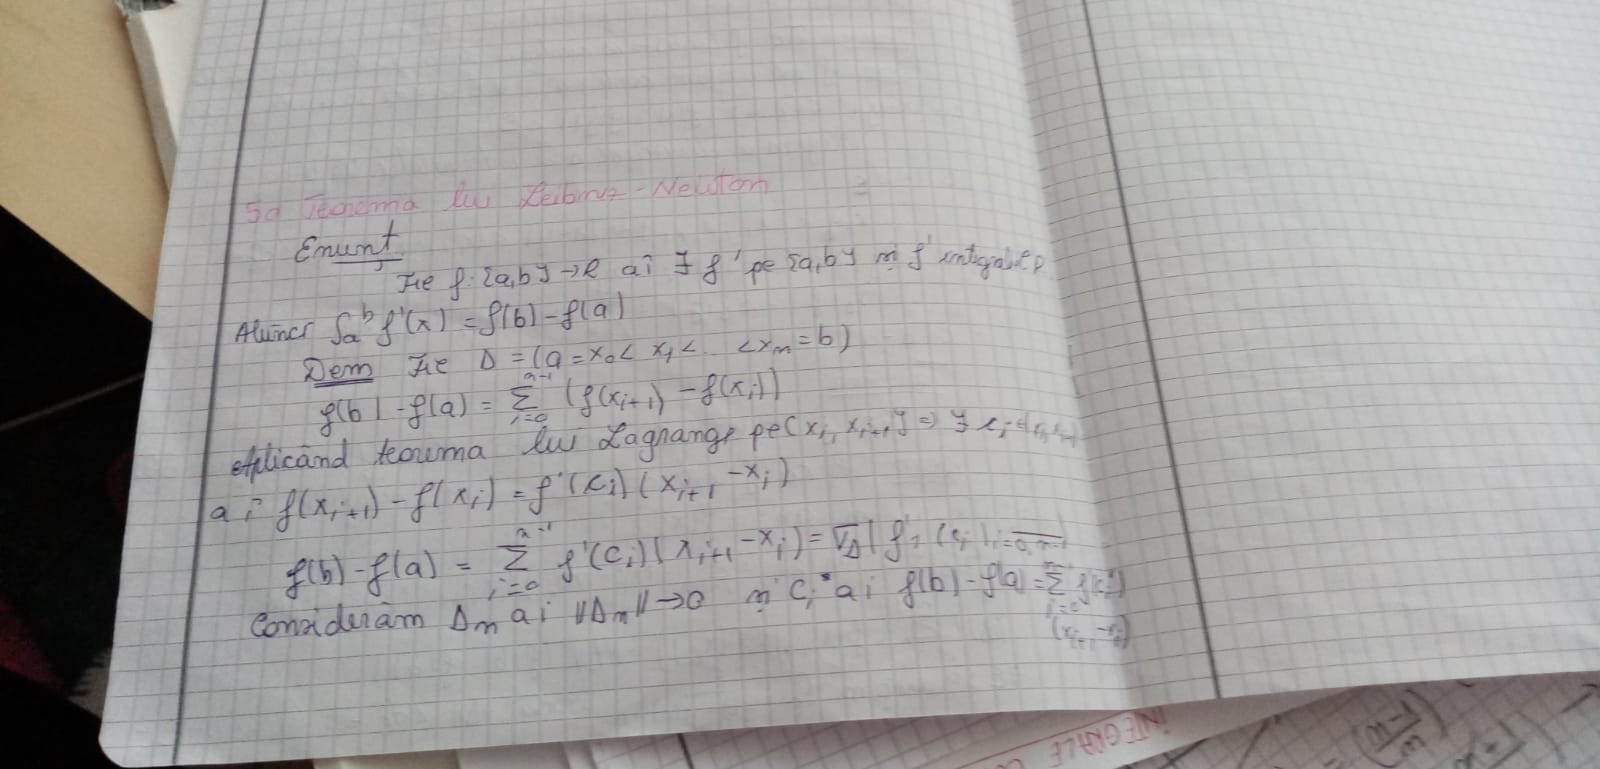 5a Teorema lui Leibniz-Newton
Enunț
Fie f:[a,b]→R aî ∃ f' pe [a,b] și f' integrabilă
Atunci ∫a^b f'(x) = f(b)-f(a)
Dem Fie Δ = (a = x₀ < x₁ < .. < xₙ = b)
f(b) - f(a) = Σ_{i=0}^{n-1} (f(xᵢ₊₁) - f(xᵢ))
Aplicând teorema lui Lagrange pe [xᵢ, xᵢ₊₁] => ∃ cᵢ
aî f(xᵢ₊₁) - f(xᵢ) = f'(cᵢ)(xᵢ₊₁ - xᵢ)
f(b) - f(a) = Σ_{i=0}^{n-1} f'(cᵢ)(xᵢ₊₁ - xᵢ) = ∇_Δ(f', (cᵢ)ᵢ₌₀,ₙ₋₁
Considerăm Δₙ aî ||Δₙ||→0 și cᵢ* aî f(b) - f(a) = Σ_{i=0} f'(cᵢ*)
(xᵢ₊₁ - xᵢ)
INTEGRALE